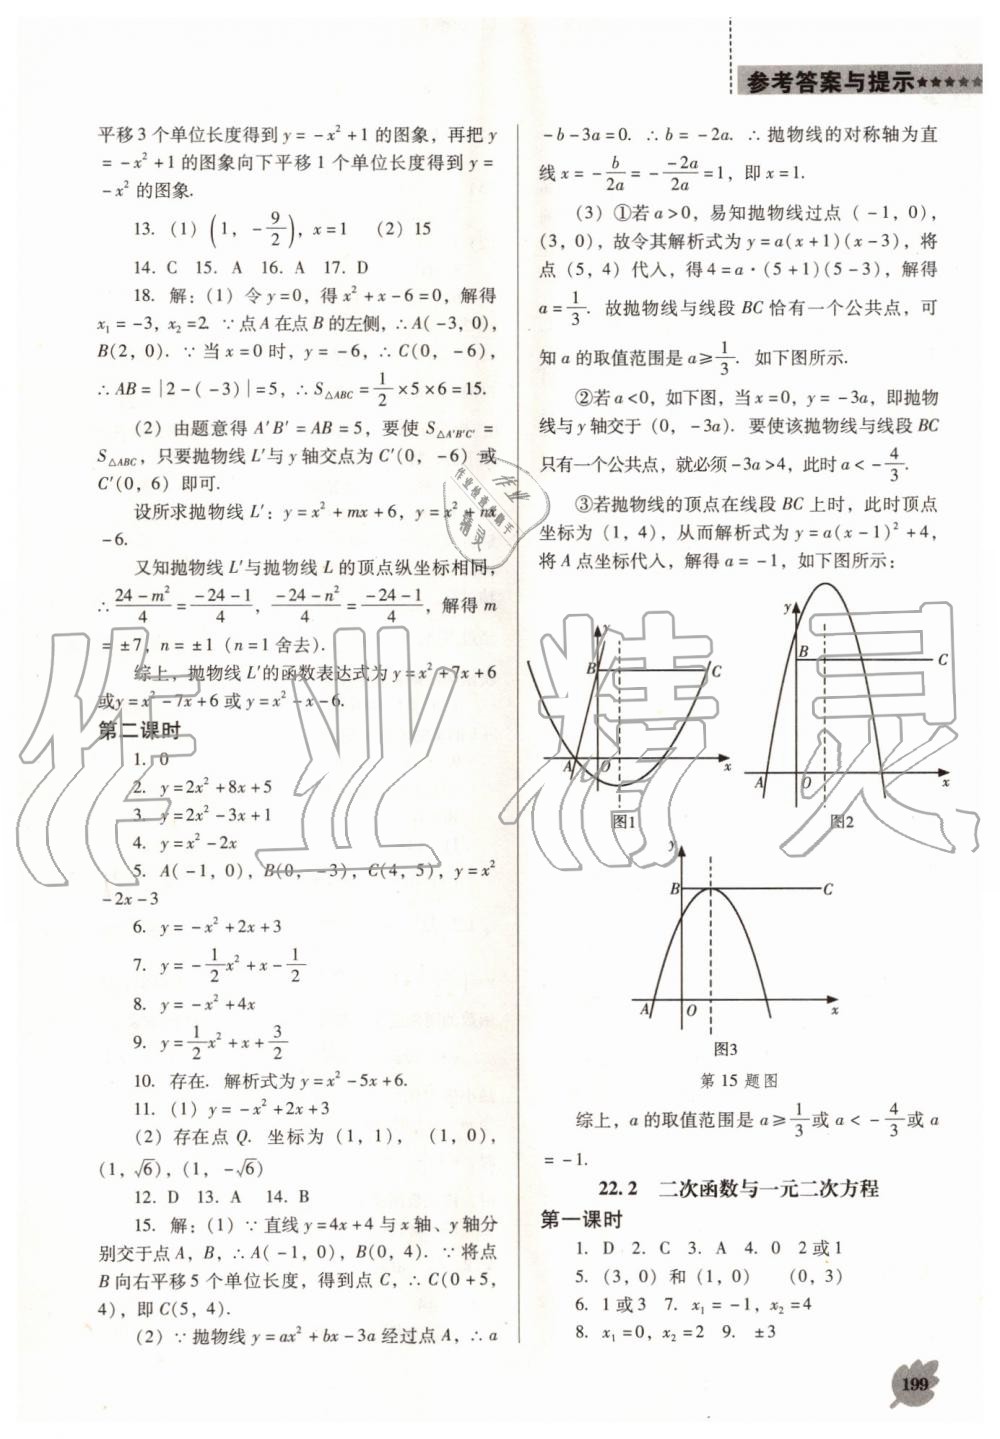 参考答案与提示★★★★★
平移 3 个单位长度得到 y = -x² + 1 的图象，再把 y
= -x² + 1 的图象向下平移 1 个单位长度得到 y =
-x² 的图象.
13. (1) (1, -9/2), x = 1 (2) 15
14. C 15. A 16. A 17. D
18. 解：(1) 令 y = 0，得 x² + x - 6 = 0，解得
x₁ = -3, x₂ = 2. ∵ 点 A 在点 B 的左侧，∴ A( -3, 0),
B(2, 0). ∵ 当 x = 0 时，y = -6，∴ C(0, -6)，
∴ AB = |2 - ( -3)| = 5，∴ S△ABC = 1/2 × 5 × 6 = 15.
(2) 由题意得 A′B′ = AB = 5，要使 S△A′B′C′ =
S△ABC，只要抛物线 L′与 y 轴交点为 C′(0, -6) 或
C′(0, 6) 即可.
设所求抛物线 L′：y = x² + mx + 6，y = x² + nx
-6.
又知抛物线 L′与抛物线 L 的顶点纵坐标相同，
∴ (24 - m²)/4 = (-24 - 1)/4，(-24 - n²)/4 = (-24 - 1)/4，解得 m
= ±7，n = ±1（n = 1 舍去）.
综上，抛物线 L′的函数表达式为 y = x² + 7x + 6
或 y = x² - 7x + 6 或 y = x² - x - 6.
第二课时
1. 0
2. y = 2x² + 8x + 5
3. y = 2x² - 3x + 1
4. y = x² - 2x
5. A( -1, 0), B(0, -3), C(4, 5), y = x²
-2x - 3
6. y = -x² + 2x + 3
7. y = -1/2x² + x - 1/2
8. y = -x² + 4x
9. y = 1/2x² + x + 3/2
10. 存在. 解析式为 y = x² - 5x + 6.
11. (1) y = -x² + 2x + 3
(2) 存在点 Q. 坐标为 (1, 1)， (1, 0)，
(1, √6)，(1, -√6)
12. D 13. A 14. B
15. 解：(1) ∵ 直线 y = 4x + 4 与 x 轴、y 轴分
别交于点 A，B，∴ A( -1, 0)，B(0, 4). ∵ 将点
B 向右平移 5 个单位长度，得到点 C，∴ C(0 + 5,
4)，即 C(5, 4).
(2) ∵ 抛物线 y = ax² + bx - 3a 经过点 A，∴ a
-b - 3a = 0. ∴ b = -2a. ∴ 抛物线的对称轴为直
线 x = -b/2a = -(-2a)/2a = 1，即 x = 1.
(3) ①若 a > 0，易知抛物线过点 ( -1, 0)，
(3, 0)，故令其解析式为 y = a(x + 1)(x - 3)，将
点 (5, 4) 代入，得 4 = a·(5 + 1)(5 - 3)，解得
a = 1/3. 故抛物线与线段 BC 恰有一个公共点，可
知 a 的取值范围是 a ≥ 1/3. 如下图所示.
②若 a < 0，如下图，当 x = 0，y = -3a，即抛物
线与 y 轴交于 (0, -3a). 要使该抛物线与线段 BC
只有一个公共点，就必须 -3a > 4，此时 a < -4/3.
③若抛物线的顶点在线段 BC 上时，此时顶点
坐标为 (1, 4)，从而解析式为 y = a(x - 1)² + 4，
将 A 点坐标代入，解得 a = -1，如下图所示：
y B C A O x
图1
y B C A O x
图2
y B C A O x
图3
第 15 题图
综上，a 的取值范围是 a ≥ 1/3 或 a < -4/3 或 a
= -1.
22.2 二次函数与一元二次方程
第一课时
1. D 2. C 3. A 4. 0 2 或 1
5. (3, 0) 和 (1, 0) (0, 3)
6. 1 或 3 7. x₁ = -1, x₂ = 4
8. x₁ = 0, x₂ = 2 9. ±3
199
作业精灵